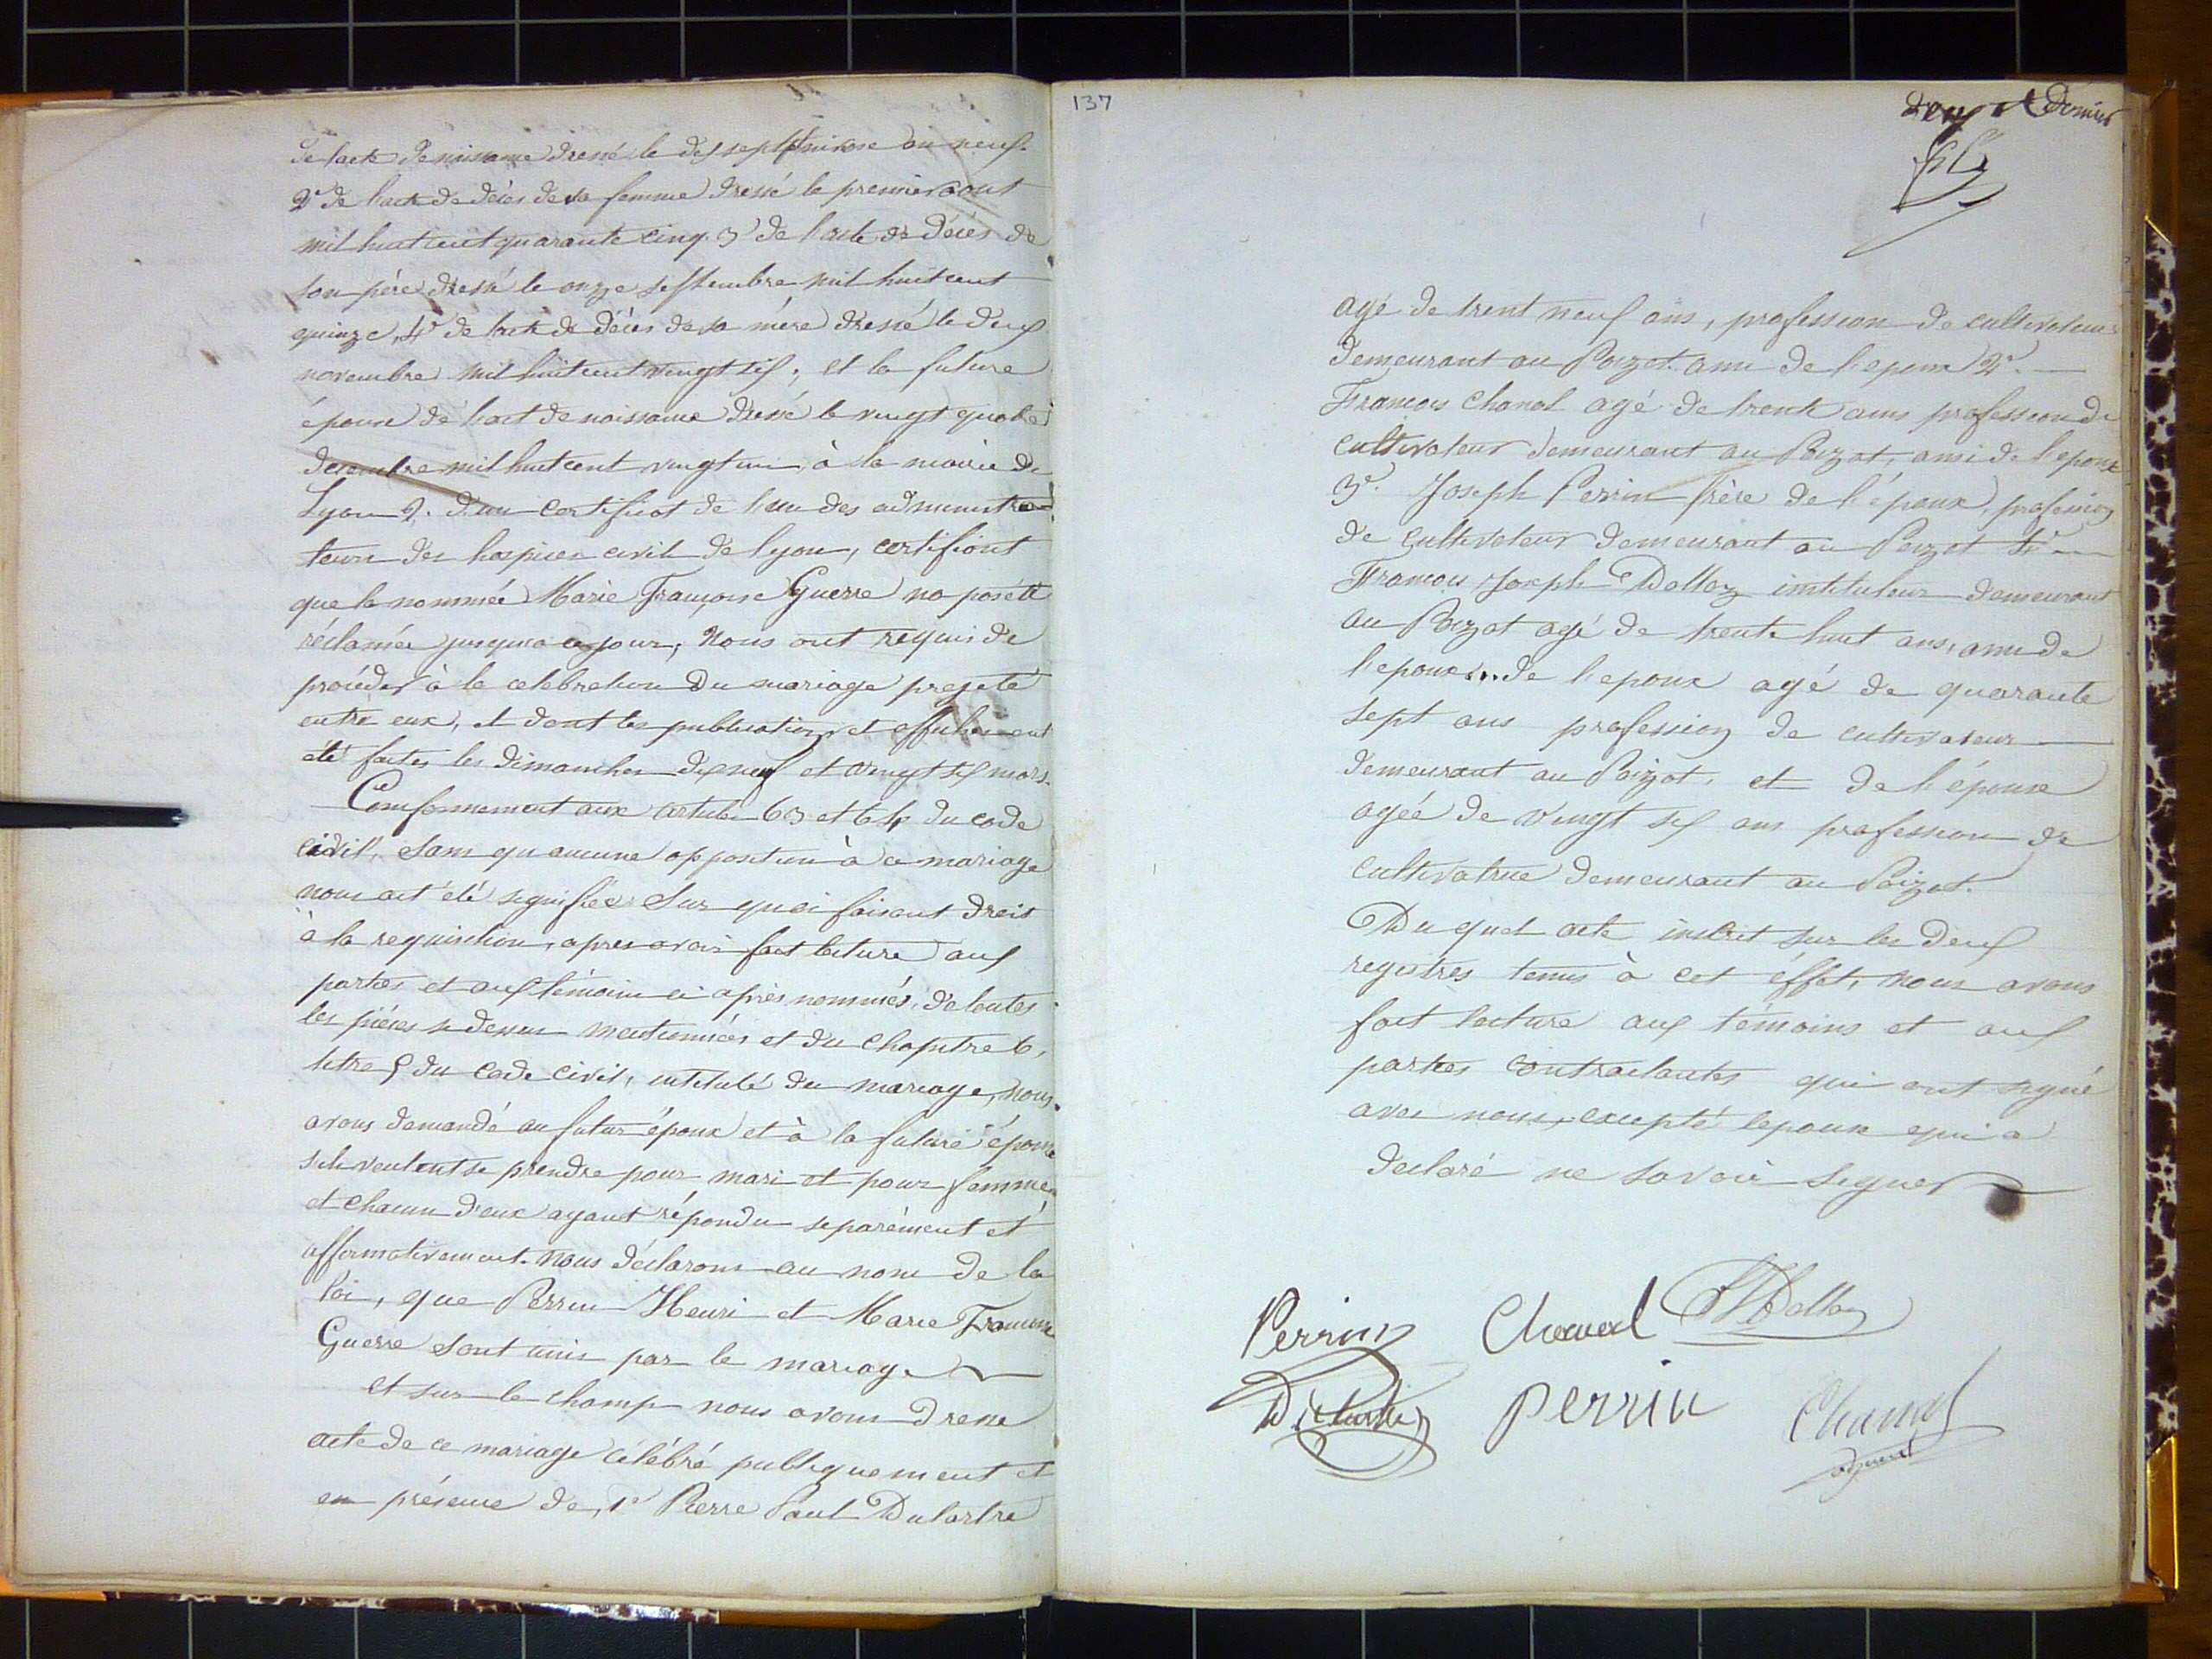 de l'acte de naissance dressé le dix sept nivose an neuf.
2° de l'acte de décès de sa femme dressé le premier aout
mil huit cent quarante cinq. 3° de l'acte de décès de
son père dressé le onze septembre mil huit cent
quinze, 4° de l'acte de décès de sa mère dressé le deux
novembre mil huit cent vingt six; et la future
épouse de l'act de naissance dressé le vingt quatre
decembre mil huit cent vingt un, à la mairie de
Lyon 2. d'un certificat de l'un des administra
teurs des hospices civil de lyon, certifiant
que la nommée Marie Françoise Guerre na pas été
réclamée jusqua ce jour; Nous ont requis de
procéder à la celebration du mariage projeté
entre eux, et dont les publications et affiches ont
été faites les dimanches dix neuf et vingt six mars.
Conformement aux articles 63 et 64 du code
civil, sans qu'aucune opposition à ce mariage
nous ait été signifiée. Sur quoi faisant droit
à la requisition, apres avoir fait lecture aux
parties et aux témoins ci après nommés, de toutes
les pièces ci dessus mentionnées et du chapitre 6,
titre 5 du code civil, intitulé du mariage, nous
avons demandé au futur époux et à la future épouse
s'ils veulent se prendre pour mari et pour femme
et chacun d'eux ayant répondu separément et
affirmativement. Nous déclarons au nom de la
loi, que Perrin Henri et Marie Francoise
Guerre sont unis par le mariage
et sur le champ nous avons dressé
acte de ce mariage célébré publiquement et
en présence de, 1° Pierre Paul Dutartre
137
dernier
agé de trent neuf ans, profession de cultivateur
demeurant au Poizat. ami de l'epoux 2°.
Francois Chanal agé de trente ans profession de
cultivateur demeurant au Poizat, ami de l'epoux
3°. Joseph Perrin frère de l'époux, profession
de cultivateur demeurant au Poizat 4°
Francois Joseph Dalloz instituteur demeurant
au Poizat agé de trente huit ans, ami de
l'epoux. de l'epoux agé de quarante
sept ans profession de cultivateur
demeurant au Poizat, et de l'épouse
agéé de vingt six ans profession de
cultivatrice demeurant au Poizat.
Du quel acte inscrit sur les deux
registres tenus à cet éffet, nous avons
fait lecture aux témoins et aux
parties contractantes qui ont signé
avec nous, excepté l'epoux qui a
déclaré ne savoir signer
Perrin Chanal FJDalloz
Dutartre Perrin Chanal
adjoint